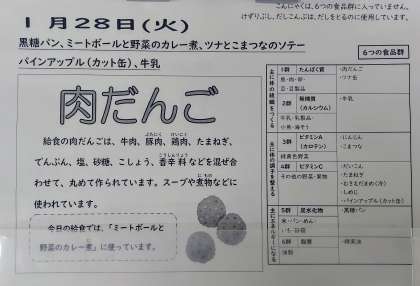 こんにゃくは、6つの食品群に入っていません。
けずりぶし、だしこんぶは、だしをとるのに使用しています。
1月28日(火)
黒糖パン、ミートボールと野菜のカレー煮、ツナとこまつなのソテー
パインアップル(カット缶)、牛乳
6つの食品群
肉だんご
給食の肉だんごは、牛肉、豚肉、鶏肉、たまねぎ、
でんぷん、塩、砂糖、こしょう、香辛料などを混ぜ合
わせて、丸めて作られています。スープや煮物などに
使われています。
今日の給食では、「ミートボールと
野菜のカレー煮」に使っています。
主に体の組織をつくる
1群 たんぱく質
魚・肉・卵・
豆・豆製品
・肉だんご
・ツナ缶
2群 無機質
(カルシウム)
牛乳・乳製品・
小魚・海そう
・牛乳
主に体の調子を整える
3群 ビタミンA
(カロテン)
緑黄色野菜
・にんじん
・こまつな
4群 ビタミンC
その他の野菜・果物
・だいこん
・たまねぎ
・むきえだまめ(冷)
・しめじ
・パインアップル(カット缶)
主にエネルギーになる
5群 炭水化物
米・パン・めん・
いも・砂糖
・黒糖パン
6群 脂質
油脂